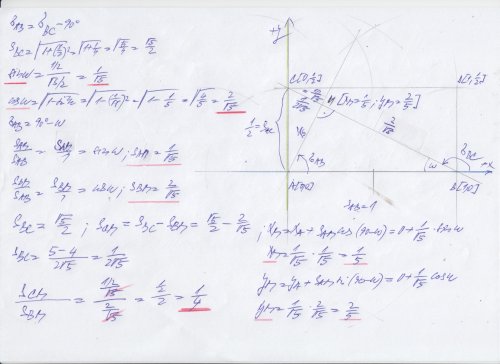 ϑ_AB = ϑ_BC − 90°
S_BC = √(1+(1/2)²) = √(1+1/4) = √(5/4) = √5/2
sin ω = (1/2)/(√5/2) = 1/√5
cos ω = √(1−sin²ω) = √(1−(1/√5)²) = √(1−1/5) = √(4/5) = 2/√5
ϑ_AB = 90° − ω
S_AM/S_AB = S_AM/1 = sin ω ; S_AM = 1/√5
S_BM/S_AB = S_BM/1 = cos ω ; S_BM = 2/√5
S_BC = √5/2 ; S_CM = S_BC − S_BM = √5/2 − 2/√5
S_BC = (5−4)/(2√5) = 1/(2√5)
S_CM/S_BM = (1/(2√5))/(2/√5) = (1/2)/2 = 1/4
+y
C[0,1/2]
[1,1/2]
1/(2√5)
M [x_M = 1/5 ; y_M = 2/5]
1/2 = S_AC
1/√5
2/√5
ϑ_AB
ω
ϑ_BC
+x
A[0,0]
B[1,0]
S_AB = 1
x_M = x_A + S_AM cos(90−ω) = 0 + 1/√5 · sin ω
x_M = 1/√5 · 1/√5 = 1/5
y_M = y_A + S_AM sin(90−ω) = 0 + 1/√5 cos ω
y_M = 1/√5 · 2/√5 = 2/5